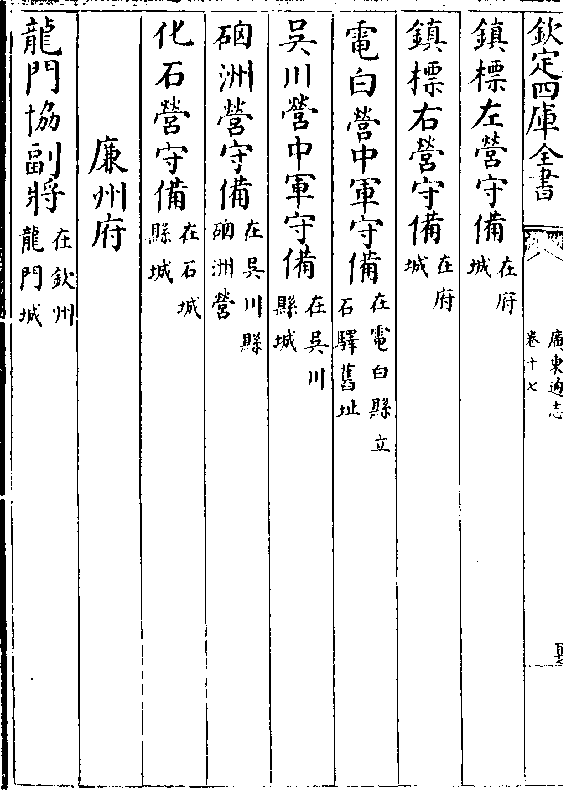 欽定四庫全書
廣東通志
卷十七
鎮標左營守備在府城
鎮標右營守備在府城
電白營中軍守備在電白縣立石驛舊址
吳川營中軍守備在吳川縣城
硇洲營守備在吳川縣硇洲營
化石營守備在石城縣城
廉州府
龍門協副將在欽州龍門城